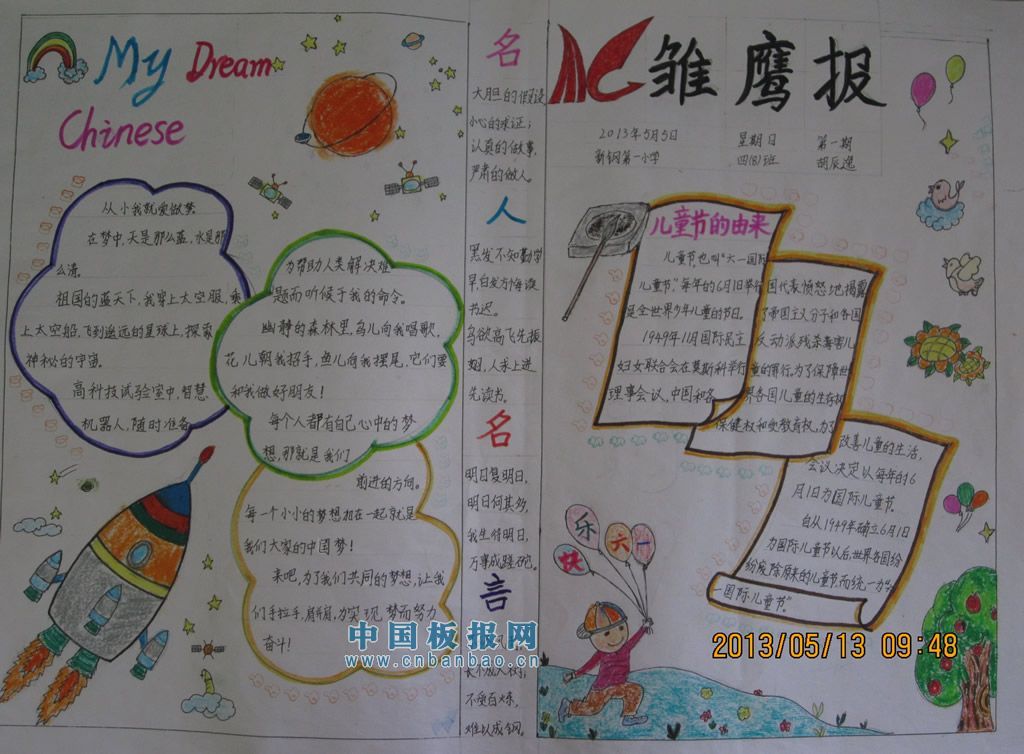 My Dream
Chinese
从小我就爱做梦
在梦中,天是那么蓝,水是那
么清。
祖国的蓝天下,我穿上太空服,乘
上太空船,飞到遥远的星球上,探索
神秘的宇宙。
高科技试验室中,智慧
机器人,随时准备
为帮助人类解决难
题而听候于我的命令。
幽静的森林里,鸟儿向我唱歌,
花儿朝我招手,鱼儿向我摆尾,它们要
和我做好朋友!
每个人都有自己心中的梦
想,那就是我们
前进的方向。
每一个小小的梦想加在一起就是
我们大家的中国梦!
来吧,为了我们共同的梦想,让我
们手拉手,肩并肩,为实现梦而努力
奋斗!
名
大胆的假设
小心的求证;
认真的做事,
严肃的做人。
人
黑发不知勤学
早白发方悔读
书迟。
鸟欲高飞先振
翅,人求上进
先读书。
名
明日复明日,
明日何其多,
我生待明日,
万事成蹉跎。
言
不受百炼,
难以成钢。
雏鹰报
2013年5月5日 星期日 第一期
新钢第一小学 四(8)班 胡辰逸
儿童节的由来
儿童节,也叫“六一国际
儿童节”,每年的6月1日举行
是全世界少年儿童的节日。
1949年11月国际民主
妇女联合会在莫斯科举行
理事会议,中国和各
国代表愤怒地揭露
了帝国主义分子和各国
反动派残杀毒害儿
童的罪行。为了保障世
界各国儿童的生存权
保健权和受教育权,为了
改善儿童的生活,
会议决定以每年的6
月1日为国际儿童节。
自从1949年确立6月1日
为国际儿童节以后,世界各国纷
纷废除原来的儿童节,而统一为“六
一国际儿童节”
快乐六一
中国板报网
www.cnbanbao.cn
2013/05/13 09:48